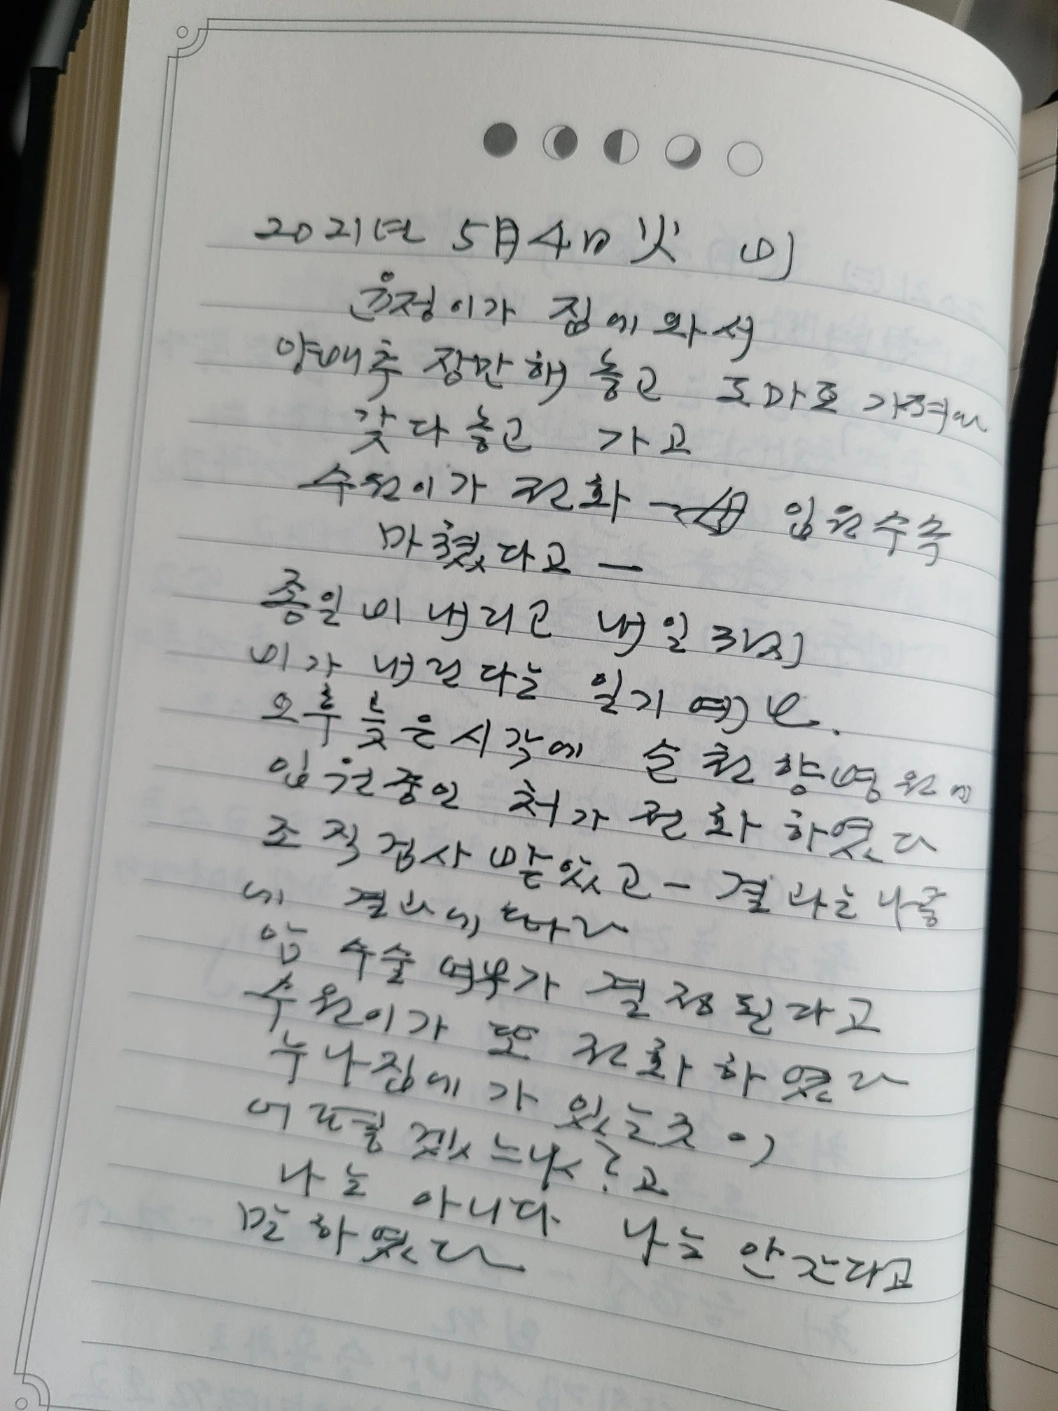 2021년 5月 4日 火 비
윤정이가 집에 와서
양배추 장만해 놓고 도마토 가져와
갖다 놓고 가고
수원이가 전화 입원수속
마쳤다고 —
종일 비 내리고 내일 까지
비가 내린다는 일기 예보.
오후 늦은 시각에 순천향병원에
입원중인 처가 전화 하였다
조직검사 받았고 — 결과는 나중
에 결과에 따라
암 수술 여부가 결정된다고
수원이가 또 전화 하였다
누나집에 가 있는 것이
어떻겠느냐? 고
나는 아니다. 나는 안간다고
말하였다